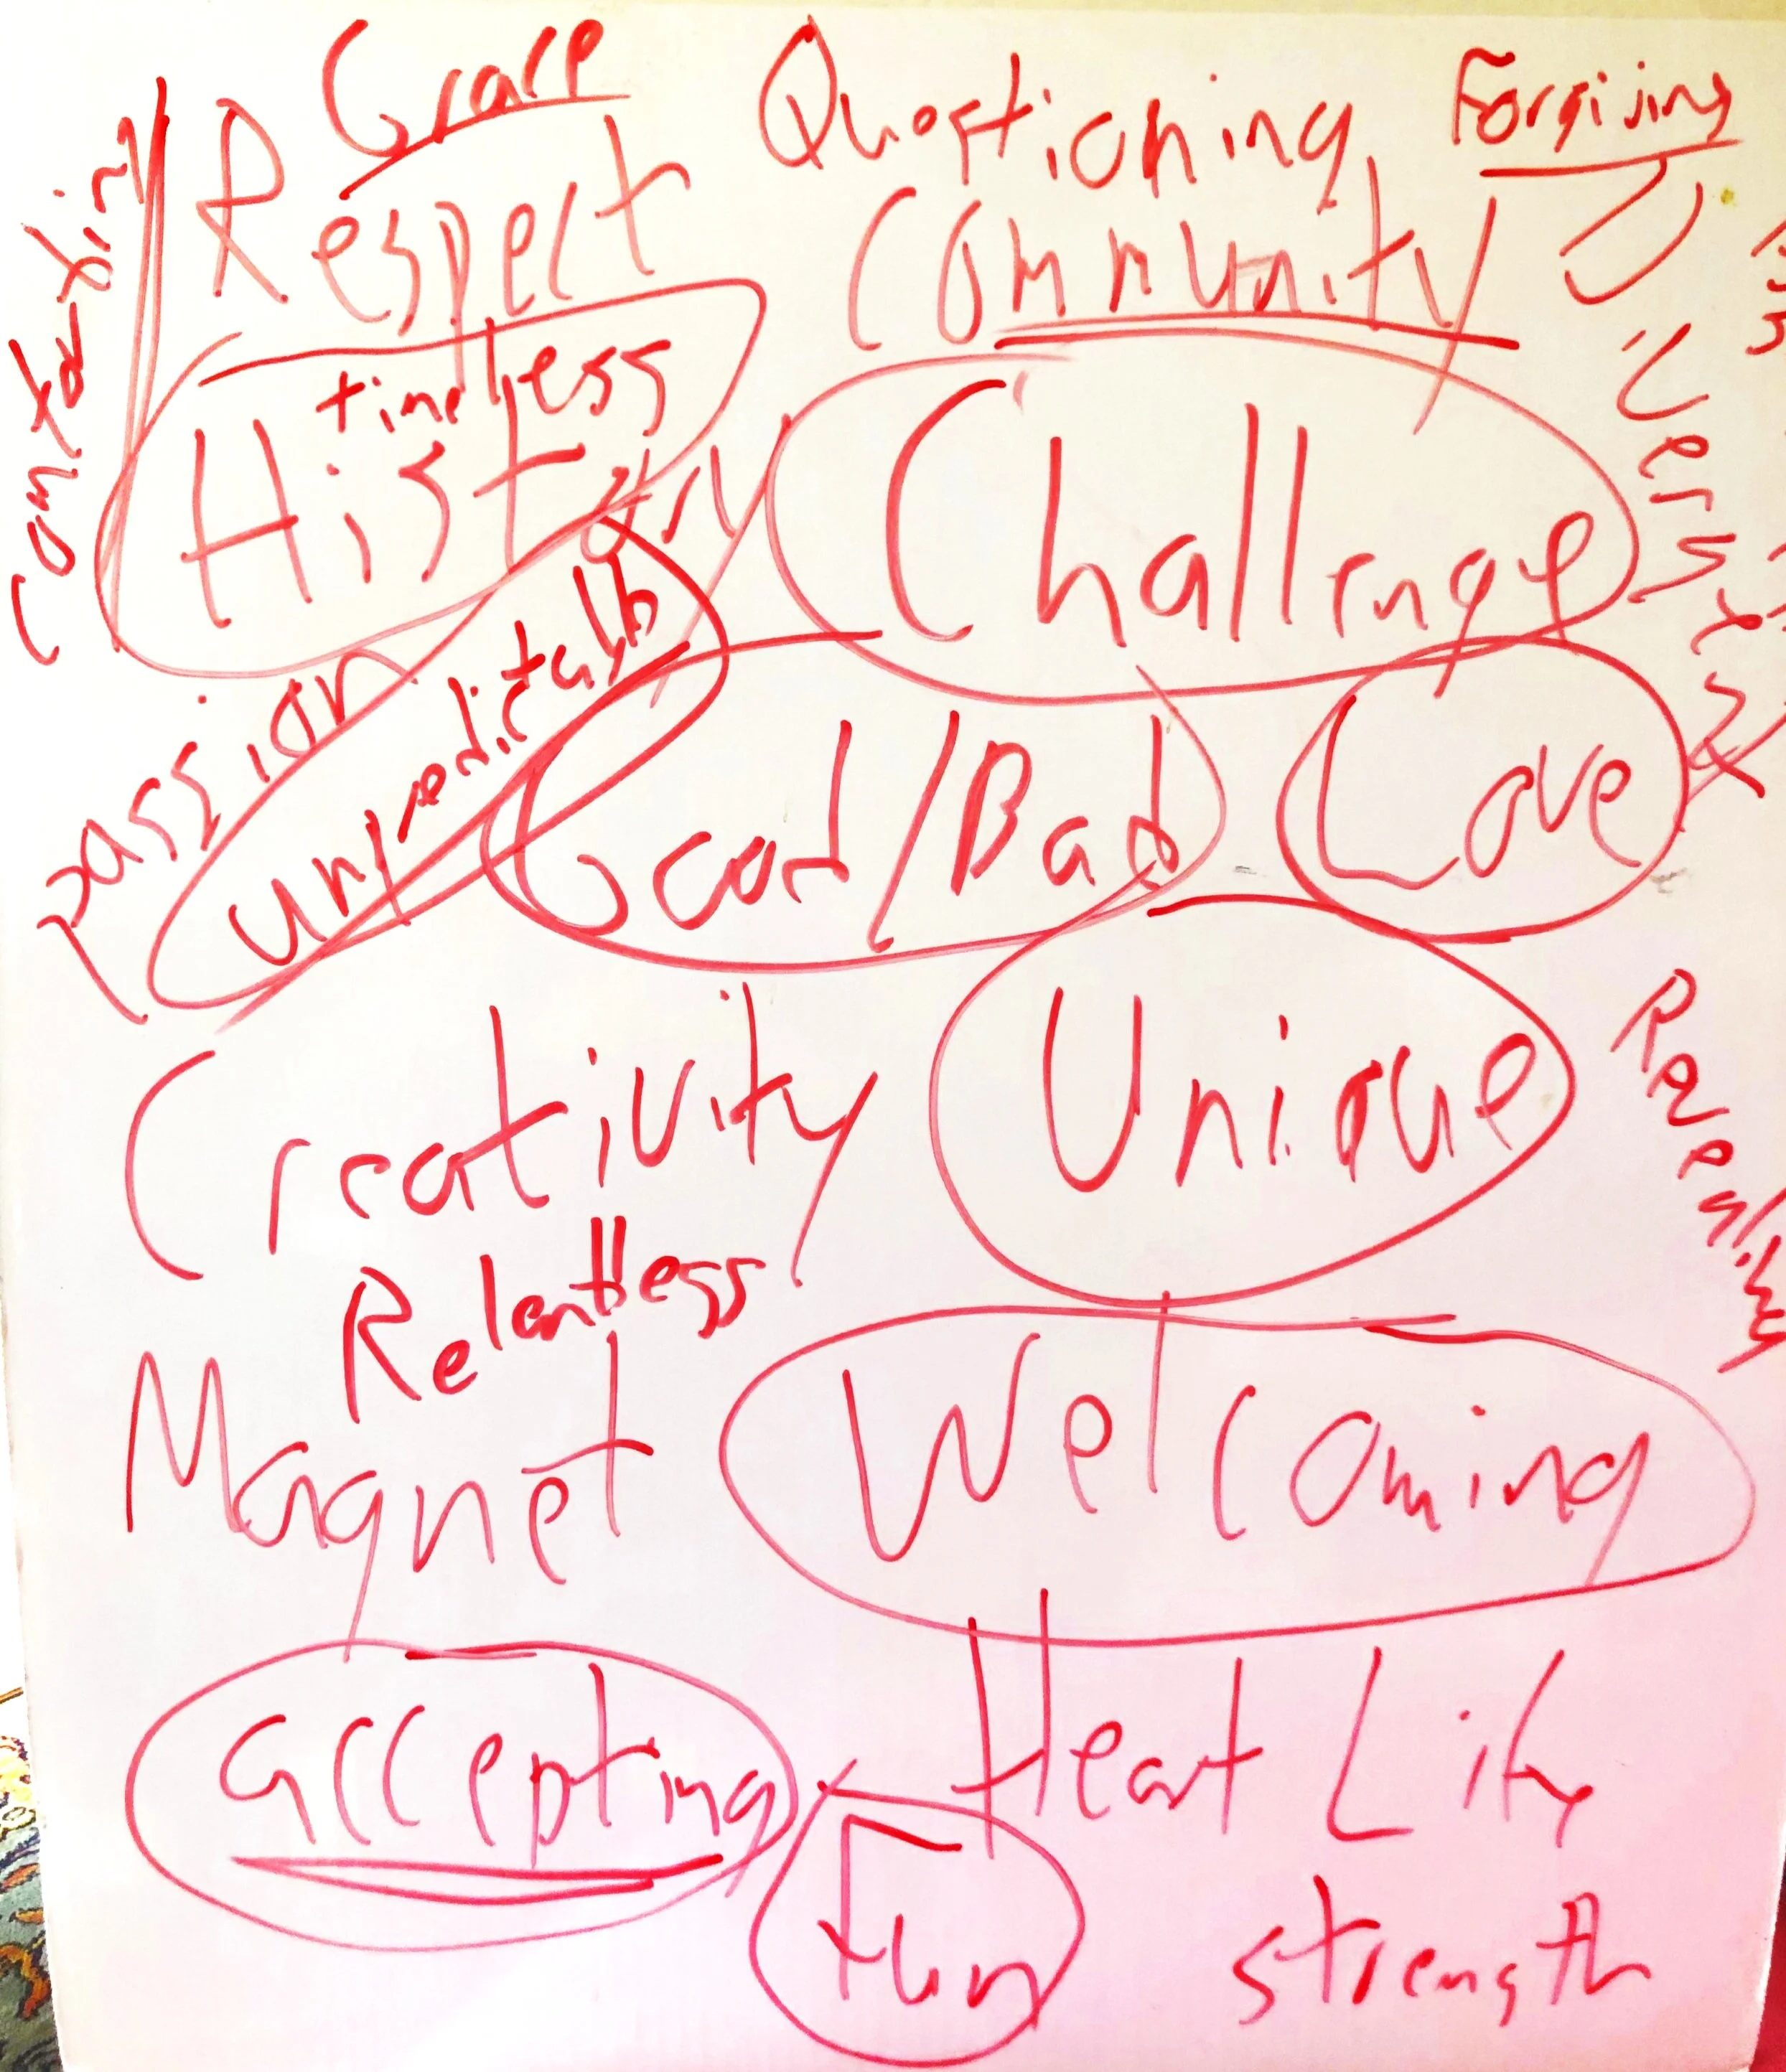 Grace
Questioning
Forgiving
Respect
Community
timeless
History
Challenge
Diversity
passion
unpredictable
Good/Bad
Love
Creativity
Unique
Relentless
Magnet
Welcoming
accepting
Heart Life
Fun
strength